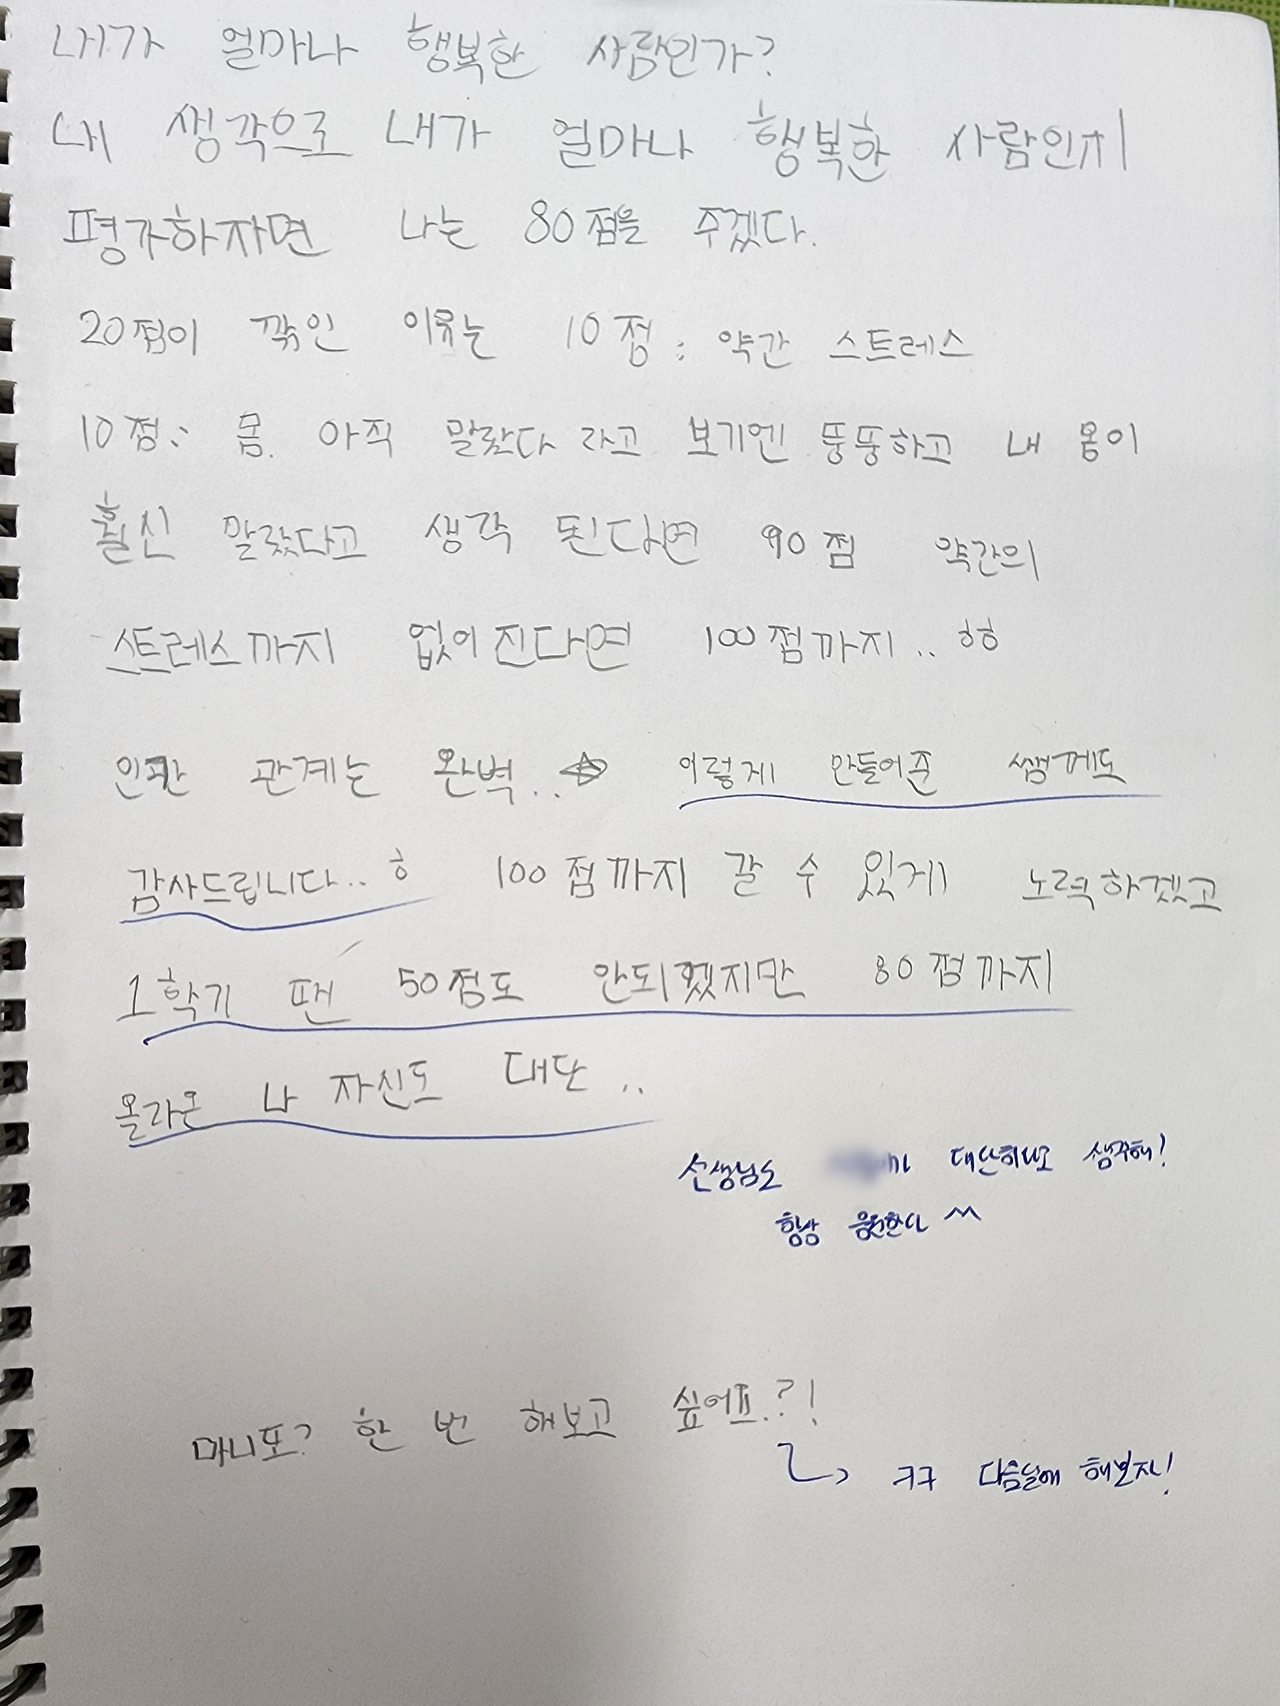 내가 얼마나 행복한 사람인가?
내 생각으로 내가 얼마나 행복한 사람인지
평가하자면 나는 80점을 주겠다.
20점이 깎인 이유는 10점 : 약간 스트레스
10점 : 몸. 아직 말랐다 라고 보기엔 뚱뚱하고 내 몸이
훨신 말랐다고 생각 된다면 90점 약간의
스트레스까지 없어진다면 100점까지.. ㅎㅎ
인간 관계는 완벽.. ☆ 이렇게 만들어준 쌤께도
감사드립니다.. ㅎ 100점까지 갈 수 있게 노력하겠고
1학기 땐 50점도 안되겠지만 80점까지
올라온 나 자신도 대단..
선생님도 가 대단하다고 생각해!
항상 응원한다 ^^
마니또? 한 번 해보고 싶어요.?!
ㅋㅋ 다음달에 해보자!